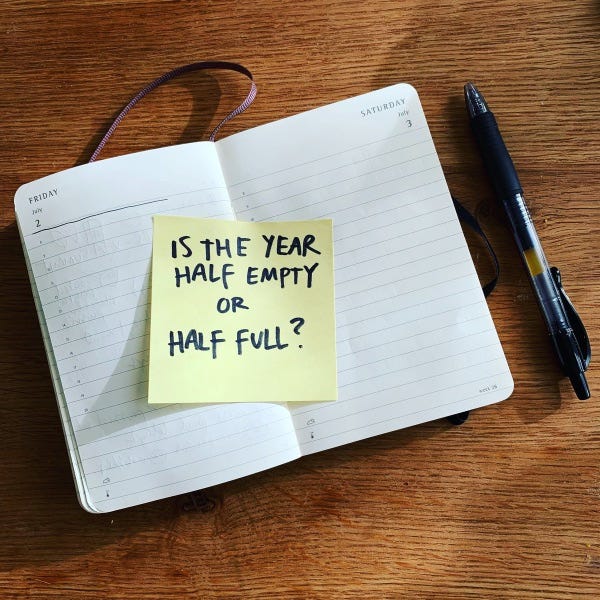 FRIDAY
July
2
SATURDAY
July
3
IS THE YEAR
HALF EMPTY
OR
HALF FULL?